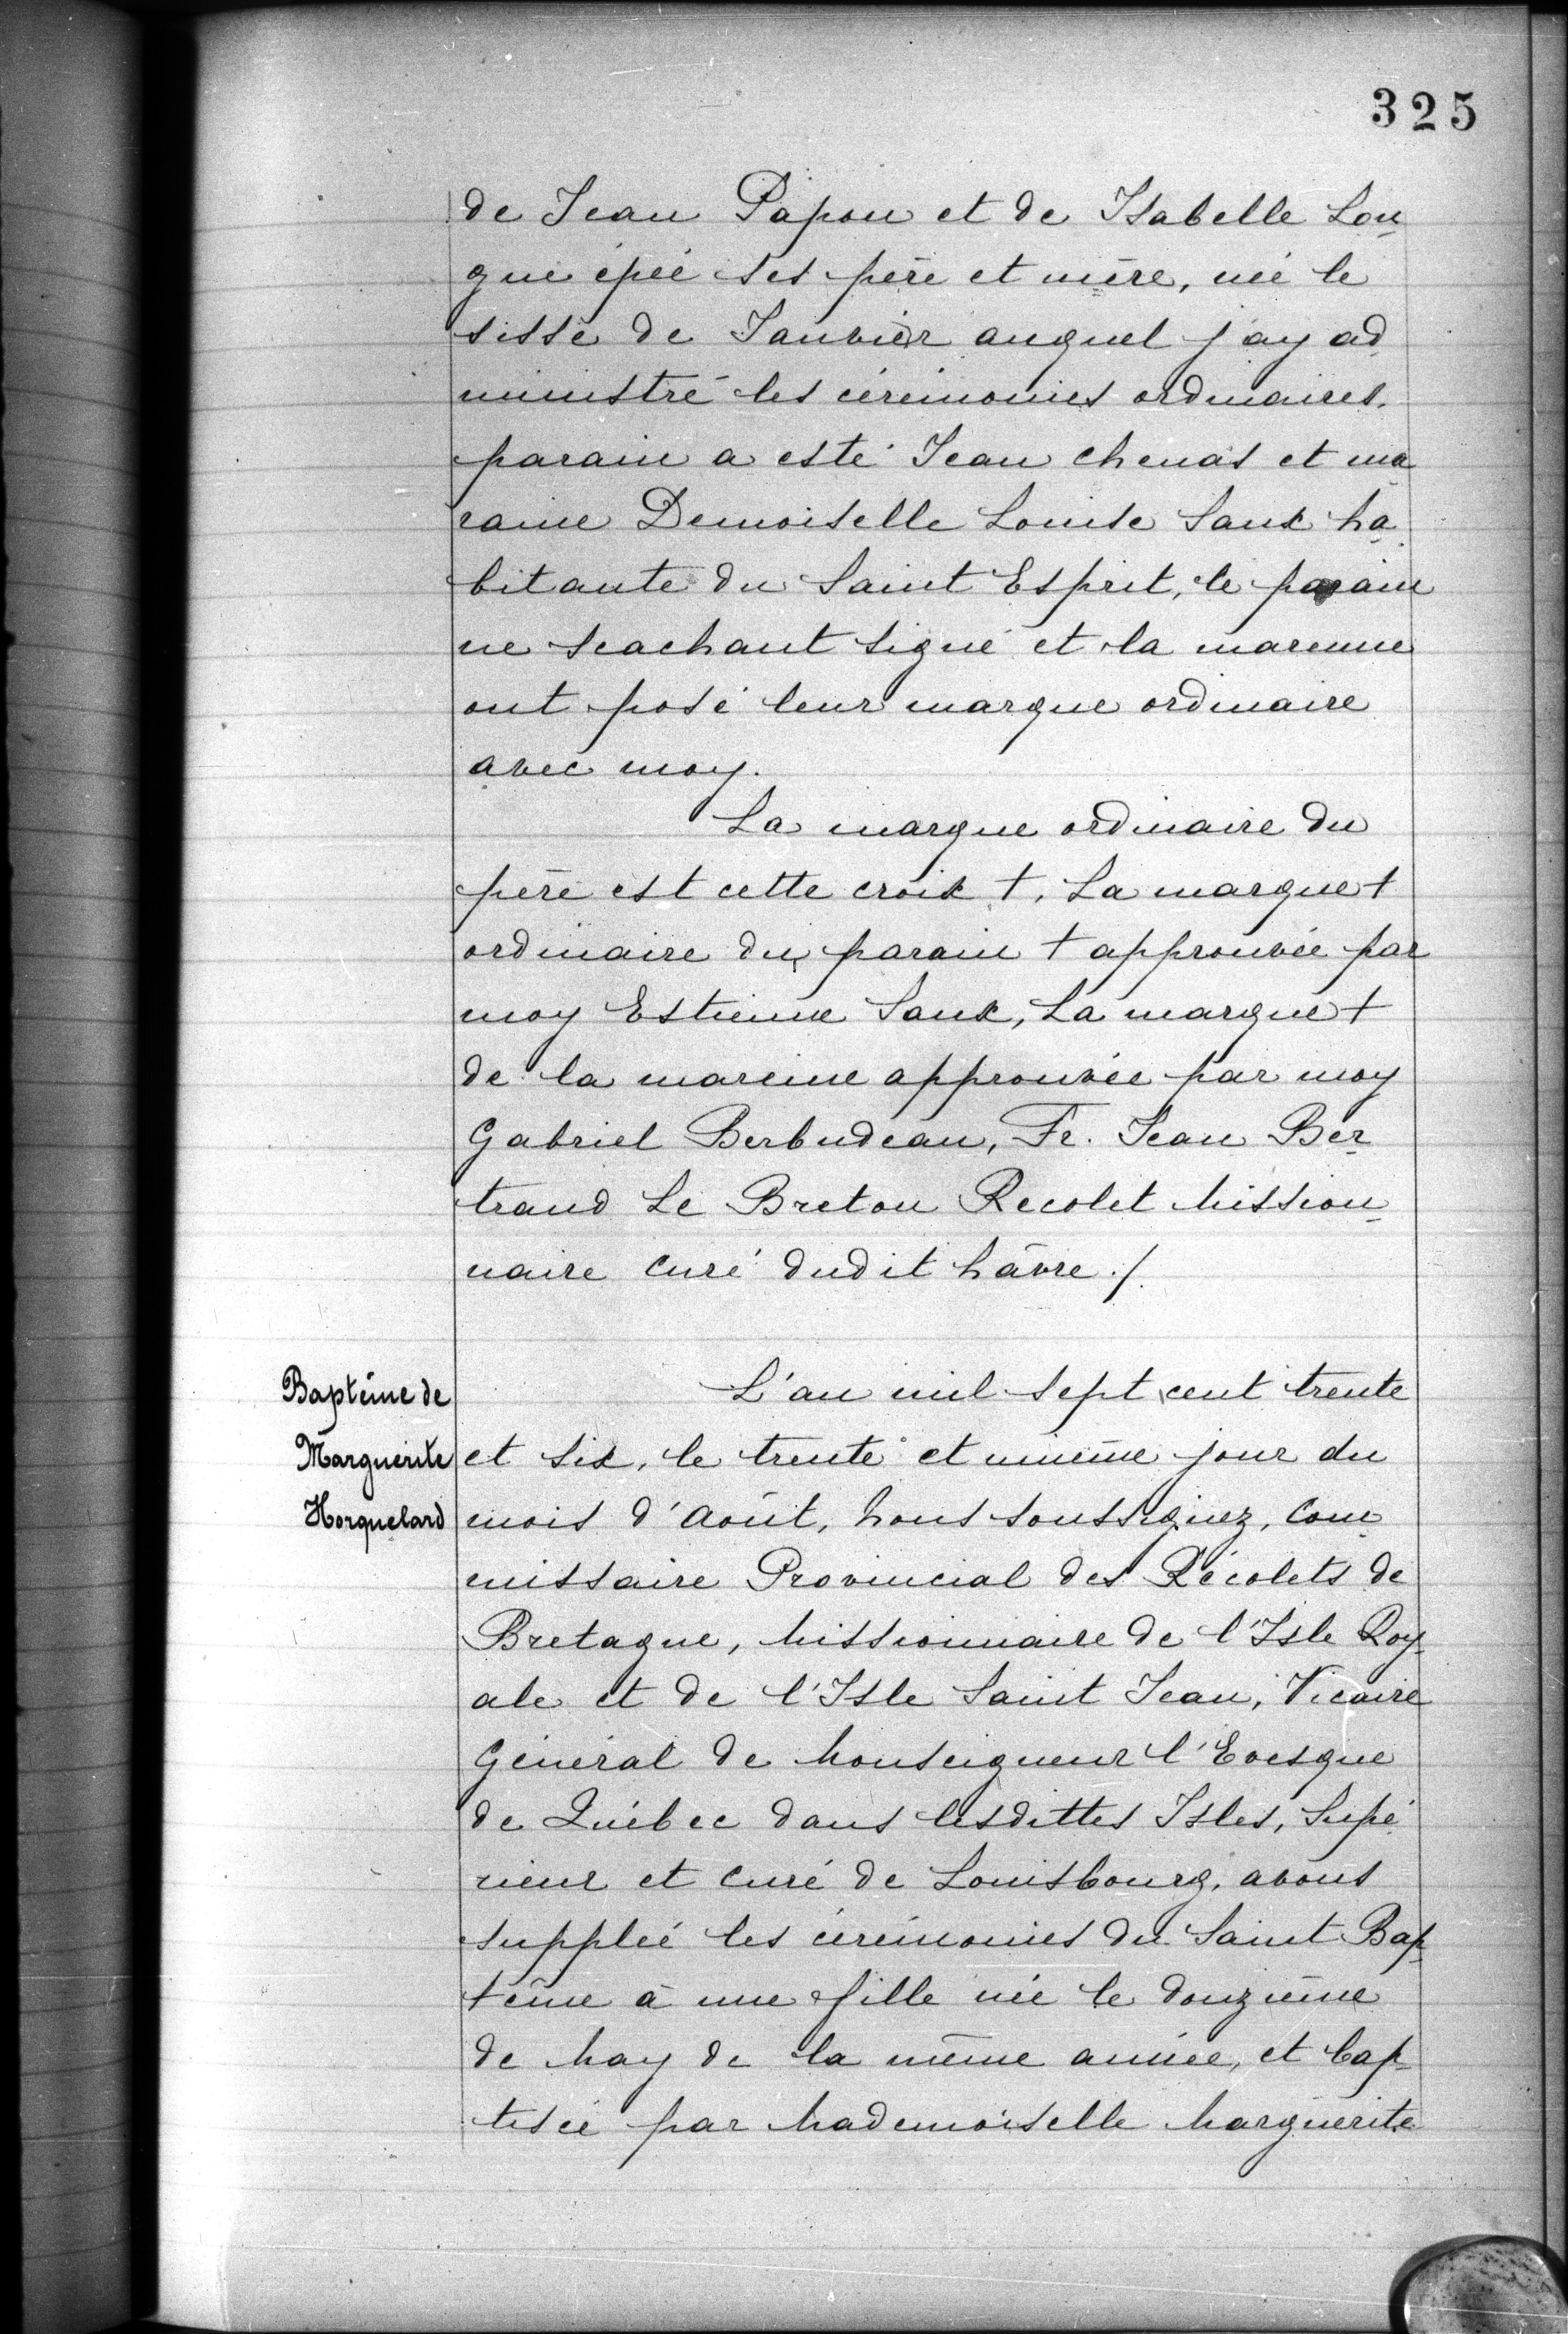 325
de Jean Papou et de Isabelle Lon
gue épée ses père et mère, née le
sisse de Janvier auquel j'ay ad
ministré les cérémonies ordinaires.
parain a esté Jean chenas et ma
raine Demoiselle Louise Saux ha
bitante du Saint Esprit, le parain
ne scachant signé et la marenne
ont posé leur marque ordinaire
avec moy.
La marque ordinaire du
père est cette croix †. La marque †
ordinaire du parain † approuvée par
moy Estienne Saux, La marque †
de la mareine approuvée par moy
Gabriel Berbudeau, Fr. Jean Ber
trand Le Breton Recolet Mission
naire Curé dudit hâvre ./.
Baptême de
Marguerite
Horquelard
L'an mil sept cent trente
et six, le trente et unième jour du
mois d'Août, Nous soussignez, Com
missaire Provincial des Récolets de
Bretagne, Missionnaire de l'Isle Roy
ale et de l'Isle Saint Jean, Vicaire
Général de Monseigneur l'Evesque
de Québec dans lesdittes Isles, Supé
rieur et Curé de Louisbourg, avons
suppléé les cérémonies du Saint Bap
tême à une fille née le douzième
de May de la même année, et bap
tisée par Mademoiselle Marguerite